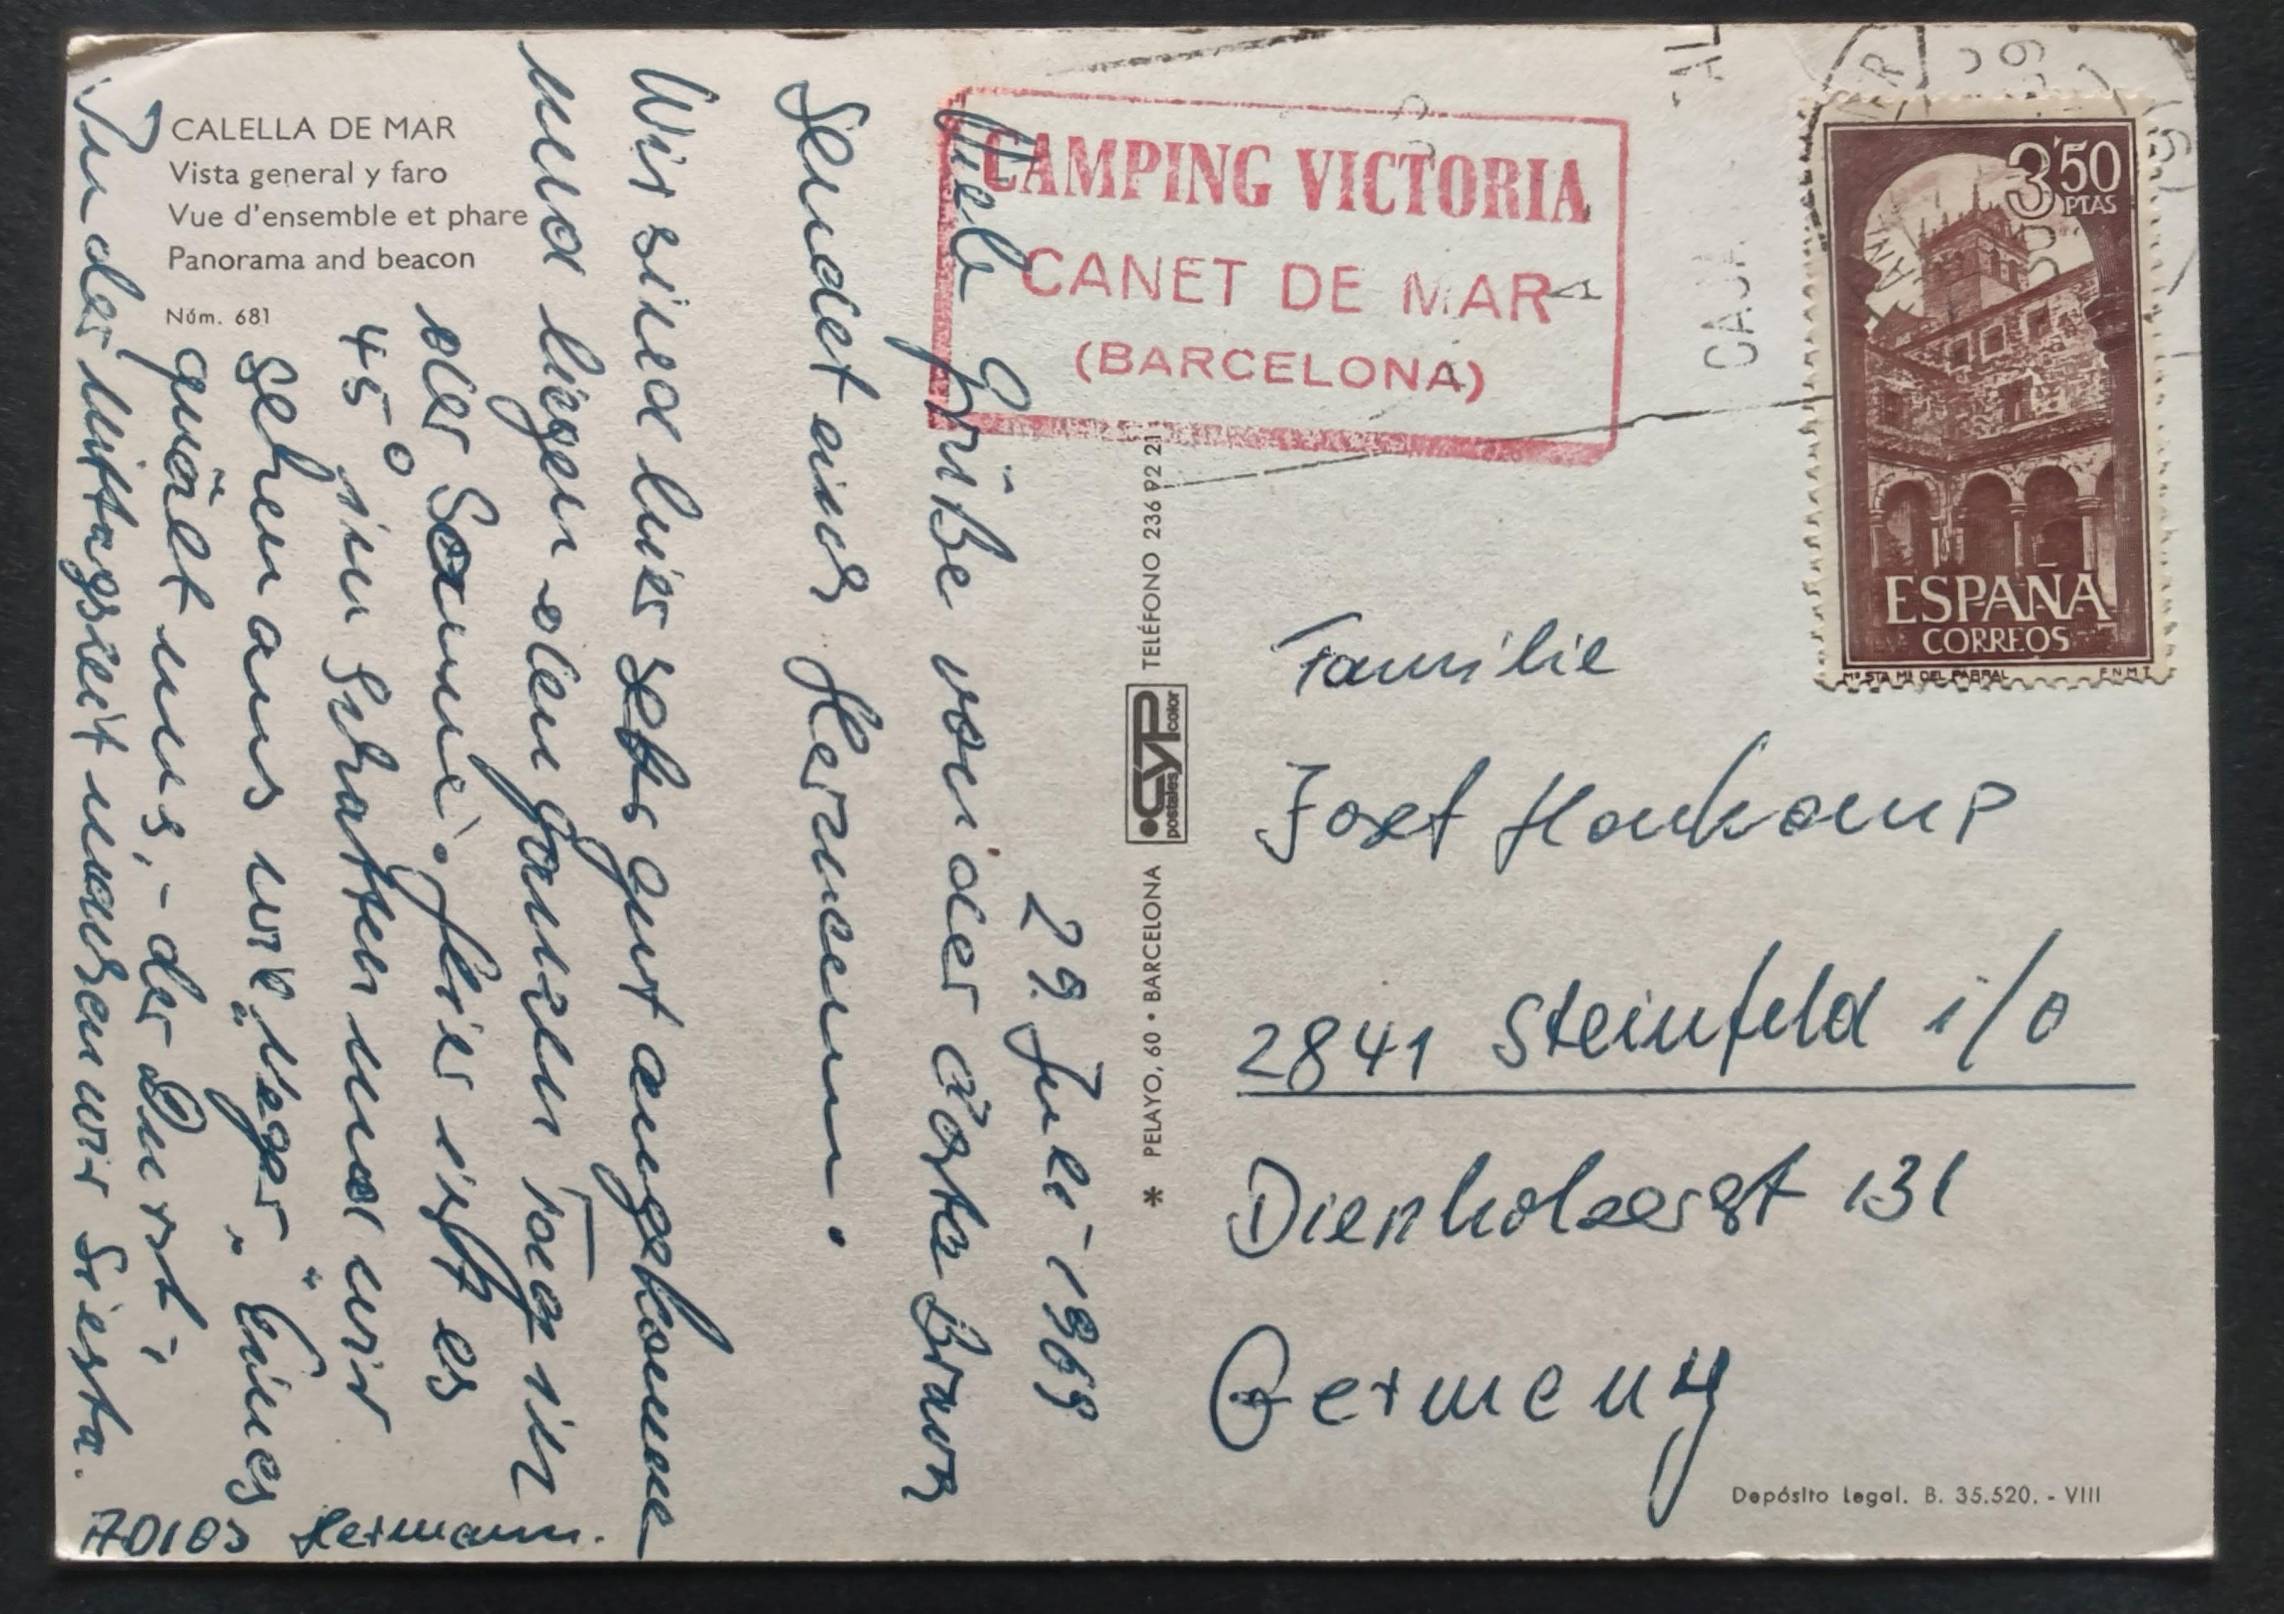 CALELLA DE MAR
Vista general y faro
Vue d'ensemble et phare
Panorama and beacon
Núm. 681
CAMPING VICTORIA
CANET DE MAR
(BARCELONA)
3'50
PTAS
ESPAÑA
CORREOS
Mº STA Mª DEL PARRAL F.N.M.T.
CAJA
29. Juli - 1969
Viele Grüße von der Costa Brava
sendet euch Hermann.
Wir sind hier sehr gut angekomme
und liegen den ganzen Tag in
der Sonne. Hier ist es
45° im Schatten und wir
sehen aus wie "Neger". Eines
quält uns, - der Durst;
In der Mittagszeit machen wir Siesta.
ADIOS Hermann.
* PELAYO, 60 • BARCELONA CYP postales color TELÉFONO 236 92 21
Familie
Josef Honkomp
2841 Steinfeld i/O
Diepholzerst 131
Germany
Depósito Legal. B. 35.520. - VIII